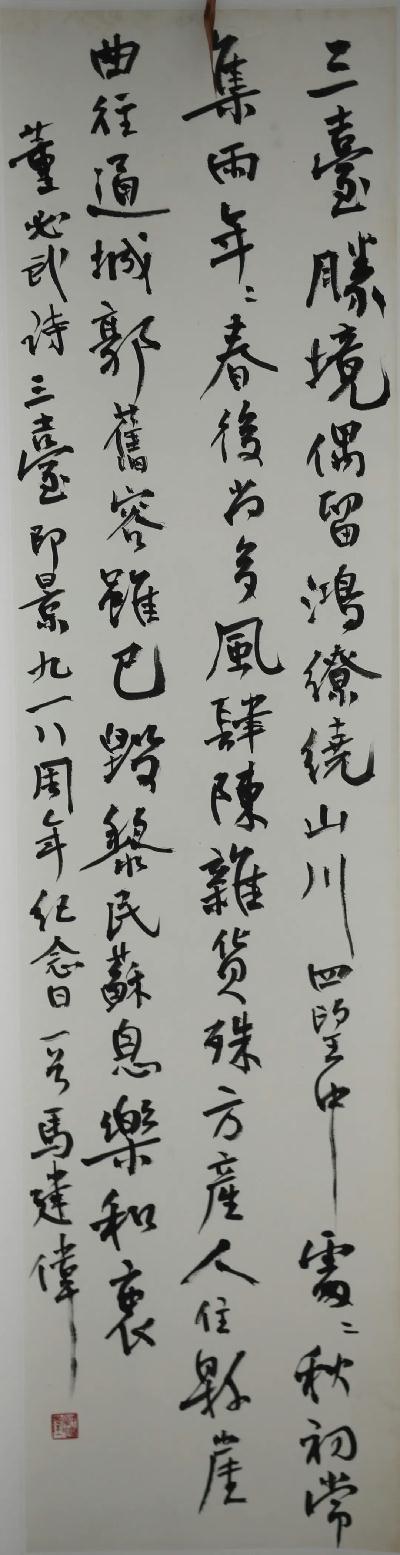 三臺勝境偶留鴻繚繞山川四望中處〻秋初常
集雨年〻春後尚多風肆陳雜貨殊方產人住縣崖
曲徑通城郭舊容雖已毀黎民蘇息樂和衷
董必武詩三臺即景九一八周年紀念日一于馬建偉